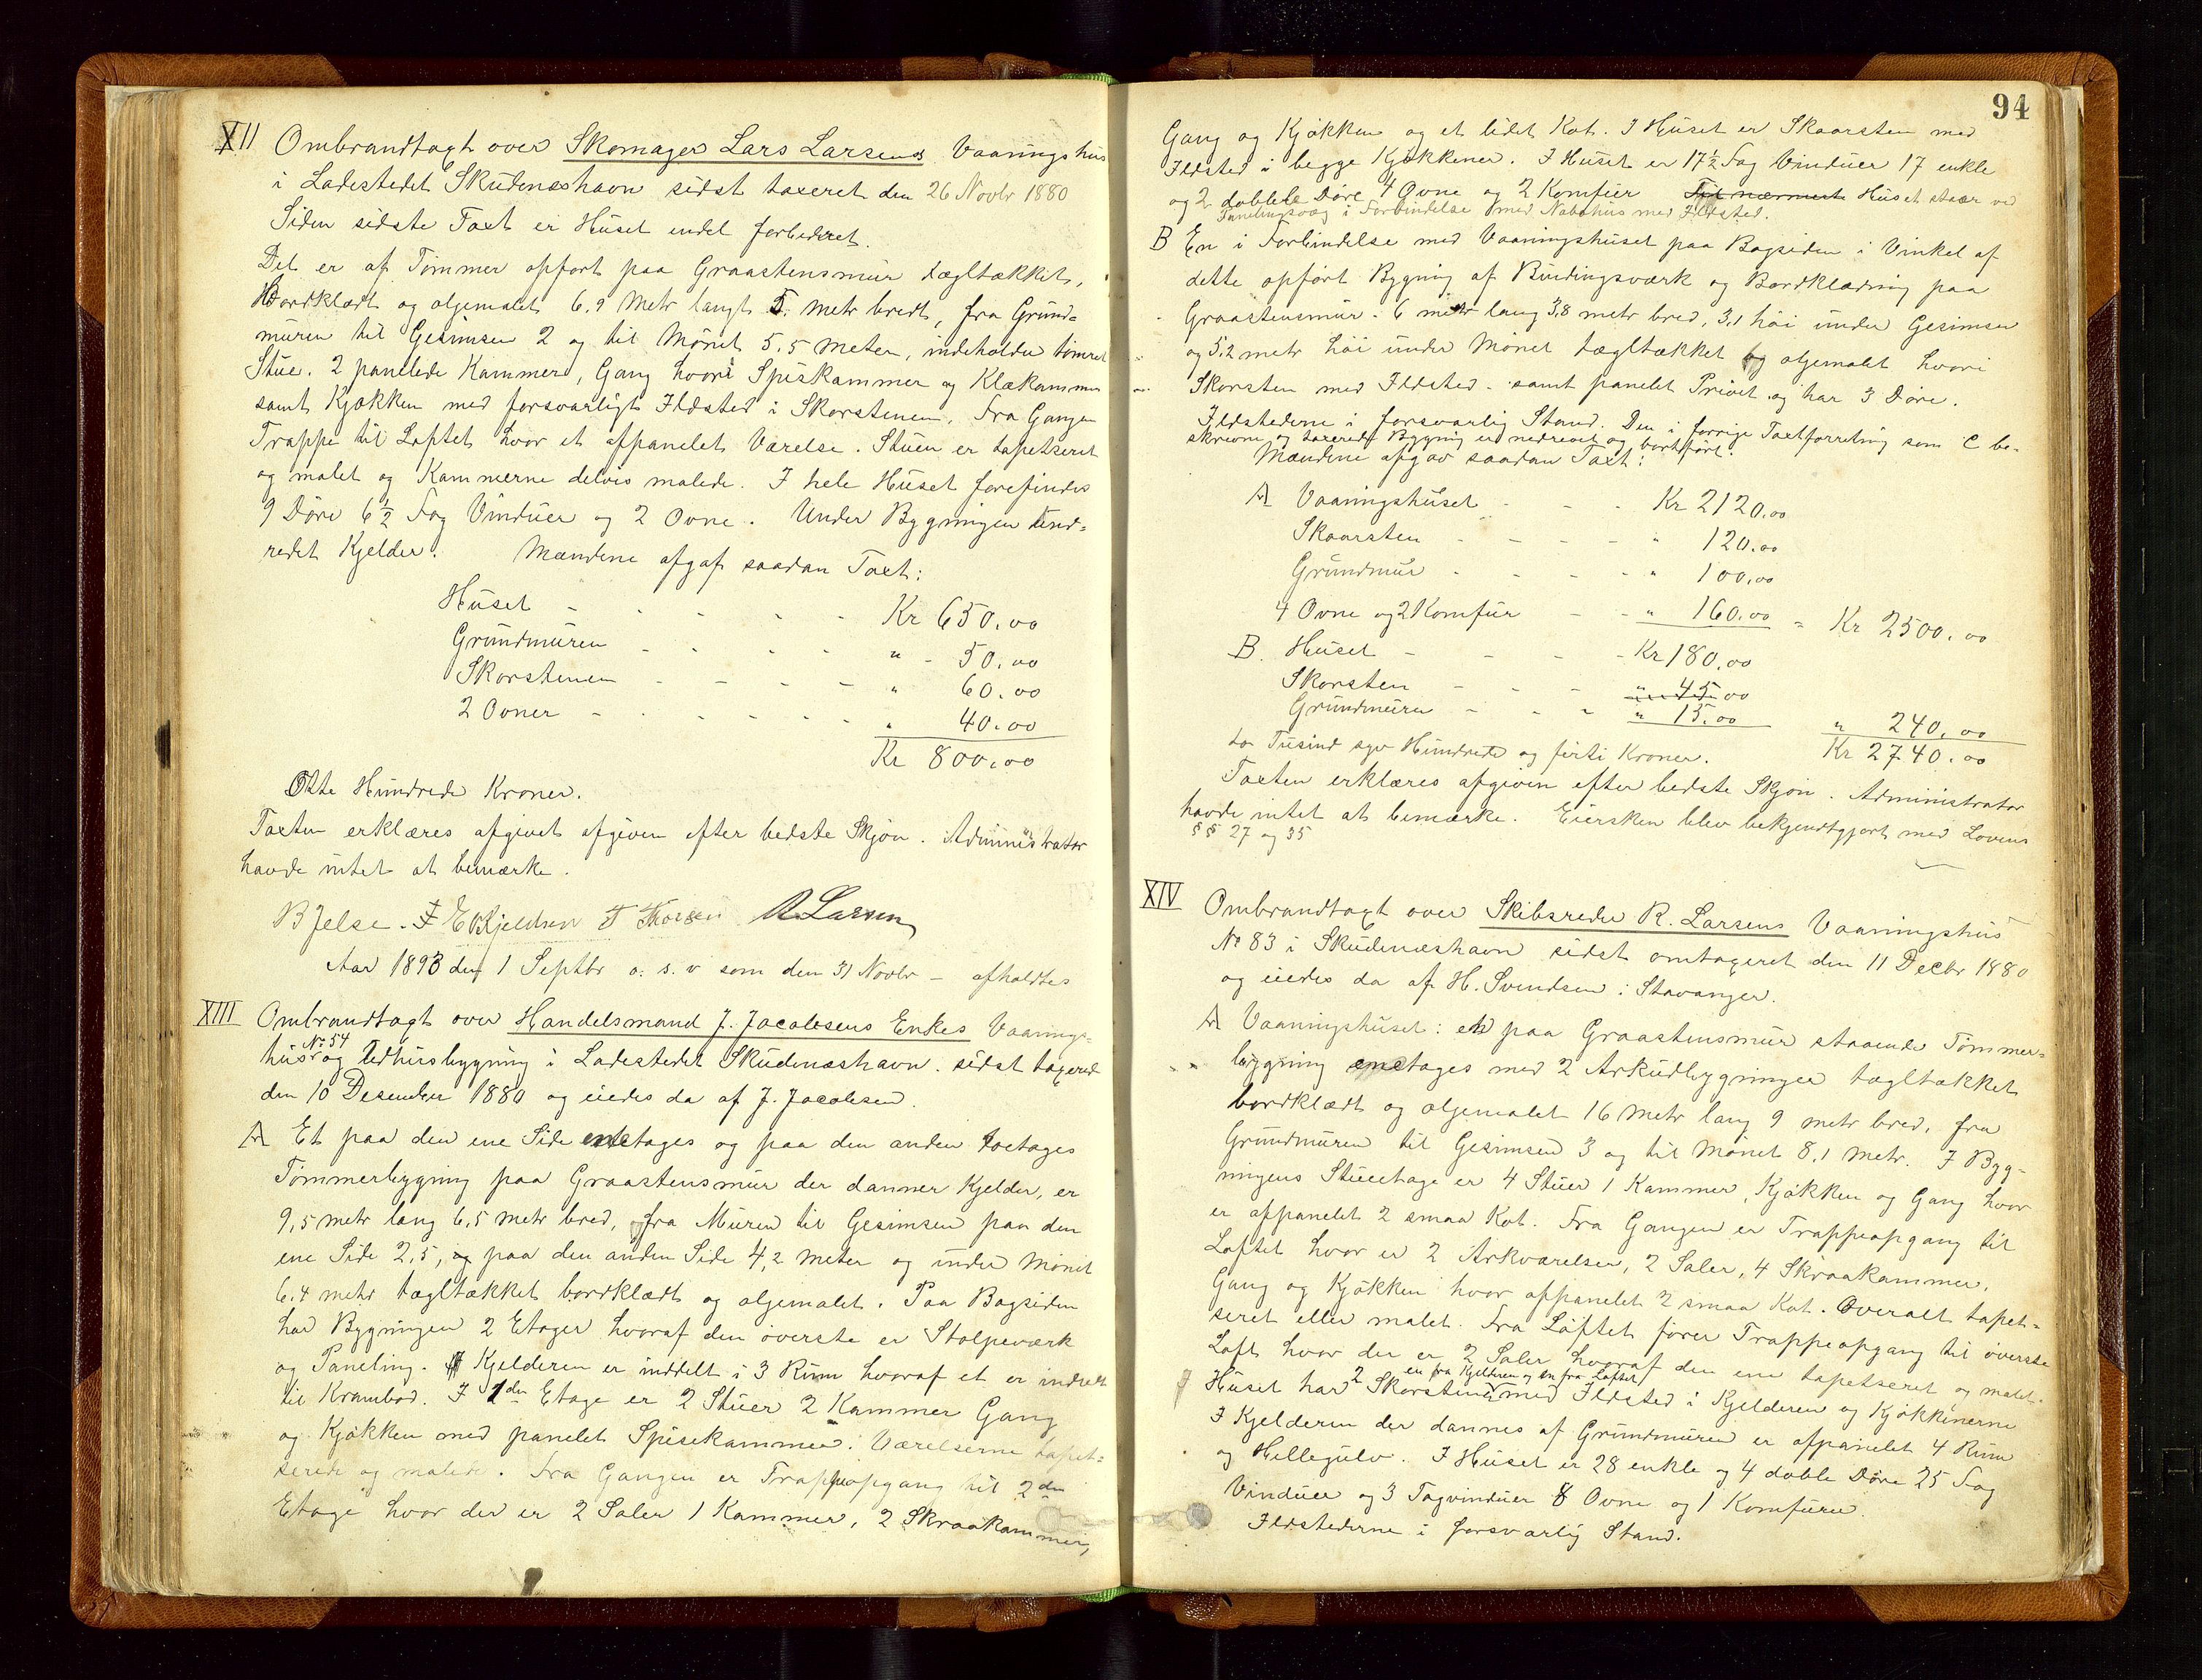 XII Ombrandtagt over Skomager Lars Larsens Vaaningshus
i Ladestedet Skudenæshavn sidst taxeret den 26 Novbr 1880
Siden sidste Taxt er Huset endel forbedret.
Det er af Tømmer opført paa Graastensmur tægltækket,
Bordklædt og oljemalet 6.9 Metr langt 5. Metr bredt, fra Grund=
muren til Gesimsen 2 og til Mønet 5,5 Meter, indeholder tømret
Stue. 2 panelede Kammer, Gang hvori Spiskammer og Klækammer
samt Kjøkken med forsvarligt Ildsted i Skorstenen. Fra Gangen
Trappe til Loftet hvor et afpanelet Værelse. Stuen er tapetseret
og malet og Kammerne delvis malede. I hele Huset forefindes
9 Døre 6½ Fag Vinduer og 2 Ovne. Under Bygningen und=
redet Kjelder. Mændene afgaf saadan Taxt:
Huset - - - - - Kr 650.00
Grundmuren - - - - " - 50.00
Skorstenen - - - - " 60.00
2 Ovner - - - - - " 40.00
Kr 800.00
Otte Hundrede Kroner.
Taxten erklæres afgivet afgiven efter bedste Skjøn. Administrator
havde intet at bemærke.
B Jelse. E Kjeldsen T Thorsen R Larsen
Aar 1893 den 1 Septbr o. s. v som den 31 Novbr - afholdtes
XIII Ombrandtagt over Handelsmand J. Jacobsens Enkes Vaanings=
hus No 54 og Udhusbygning i Ladestedet Skudenæshavn. sidst taxeret
den 10 Desember 1880 og eiedes da af J. Jacobsen.
A Et paa den ene Side enetages og paa den anden toetages
Tømmerbygning paa Graastensmur der danner Kjelder, er
9,5 metr lang 6,5 metr bred, fra Muren til Gesimsen paa den
ene Side 2,5, og paa den anden Side 4,2 meter og under Mønet
6.4 metr tægltækket bordklædt og oljemalet. Paa Bagsiden
har Bygningen 2 Etager hvoraf den øverste er Stolpeværk
og Paneling. Kjelderen er inddelt i 3 Rum hvoraf et er indredt
til Krambod. I 1de Etage er 2 Stuer 2 Kammer Gang
og Kjøkken med panelet Spisekammer. Værelserne tapet=
serede og malede. Fra Gangen er Trappeopgang til 2den
Etage hvor der er 2 Saler 1 Kammer, 2 Skraakammer,
94
Gang og Kjøkken og et lidet Kot. I Huset er Skaarsten med
Ildsted i begge Kjøkkener. I Huset er 17½ Fag Vinduer 17 enkle
og 2 dobbelte Døre 4 Ovne og 2 Komfur Til nærmeste Huset staar ved
Panelingsvæg i Forbindelse med Nabohus med Ildsted.
B En i Forbindelse med Vaaningshuset paa Bagsiden i Vinkel af
dette opført Bygnig af Bindingsværk og Bordklædning paa
Graastensmur. 6 metr lang 3,8 metr bred, 3,1 høi under Gesimsen
og 5,2 metr høi under Mønet tægltækket og oljemalet hvori
Skorsten med Ildsted - samt panelet Privet og har 3 Døre.
Ildstederne i forsvarlig Stand. Den i forrige Taxtforretning som C be-
skrevne og taxerede Bygnig er nedrevet og bortført.
Mændene afgav saadan Taxt:
A Vaaningshuset - - - Kr 2120.00
Skaarsten - - - - " 120.00
Grundmur - - - - " 100.00
4 Ovne og 2 Komfur - - " 160.00 = Kr 2500.00
B. Huset - - - - Kr 180.00
Skorsten - - - " 45.00
Grundmuren - - - " 15.00 " 240.00
to Tusind syv Hundrede og førti Kroner. Kr 2740.00
Taxten erklæres afgiven efter bedste Skjøn. Administrator
havde intet at bemærke. Eiersken blev bekjendtgjort med Lovens
§§ 27 og 35
XIV Ombrandtagt over Skibsreder R. Larsens Vaaningshus
No 83 i Skudenæshavn sidst omtaxeret den 11 Decbr 1880
og eiedes da af H. Svendsen i Stavanger.
A Vaaningshuset: en paa Graastensmur staaende Tømmer=
bygning enetages med 2 Arkudbygninger tægltækket
bordklædt og oljemalet 16 Metr lang 9 metr bred, fra
Grundmuren til Gesimsen 3 og til Mønet 8,1 Metr. I Byg-
ningens Stueetage er 4 Stuer 1 Kammer, Kjøkken og Gang hvor
er afpanelet 2 smaa Kot. Fra Gangen er Trappeopgang til
Loftet hvor er 2 Arkværelser, 2 Saler, 4 Skraakammer,
Gang og Kjøkken hvor afpanelet 2 smaa Kot. Overalt tapet=
seret eller malet. Fra Loftet fører Trappeopgang til øverste
Loft hvor der er 2 Saler hvoraf den ene tapetseret og malet.
en fra Kjelderen og en fra Loftet
Huset har 2 Skorstene med Ildsted i Kjelderen og Kjøkkenerne
I Kjelderen der dannes af Grundmuren er afpanelet 4 Rum
og Hellegulv. I Huset er 28 enkle og 4 doble Døre 25 Fag
Vinduer og 3 Tagvinduer 8 Ovne og 1 Komfure.
Ildstederne i forsvarlig Stand.